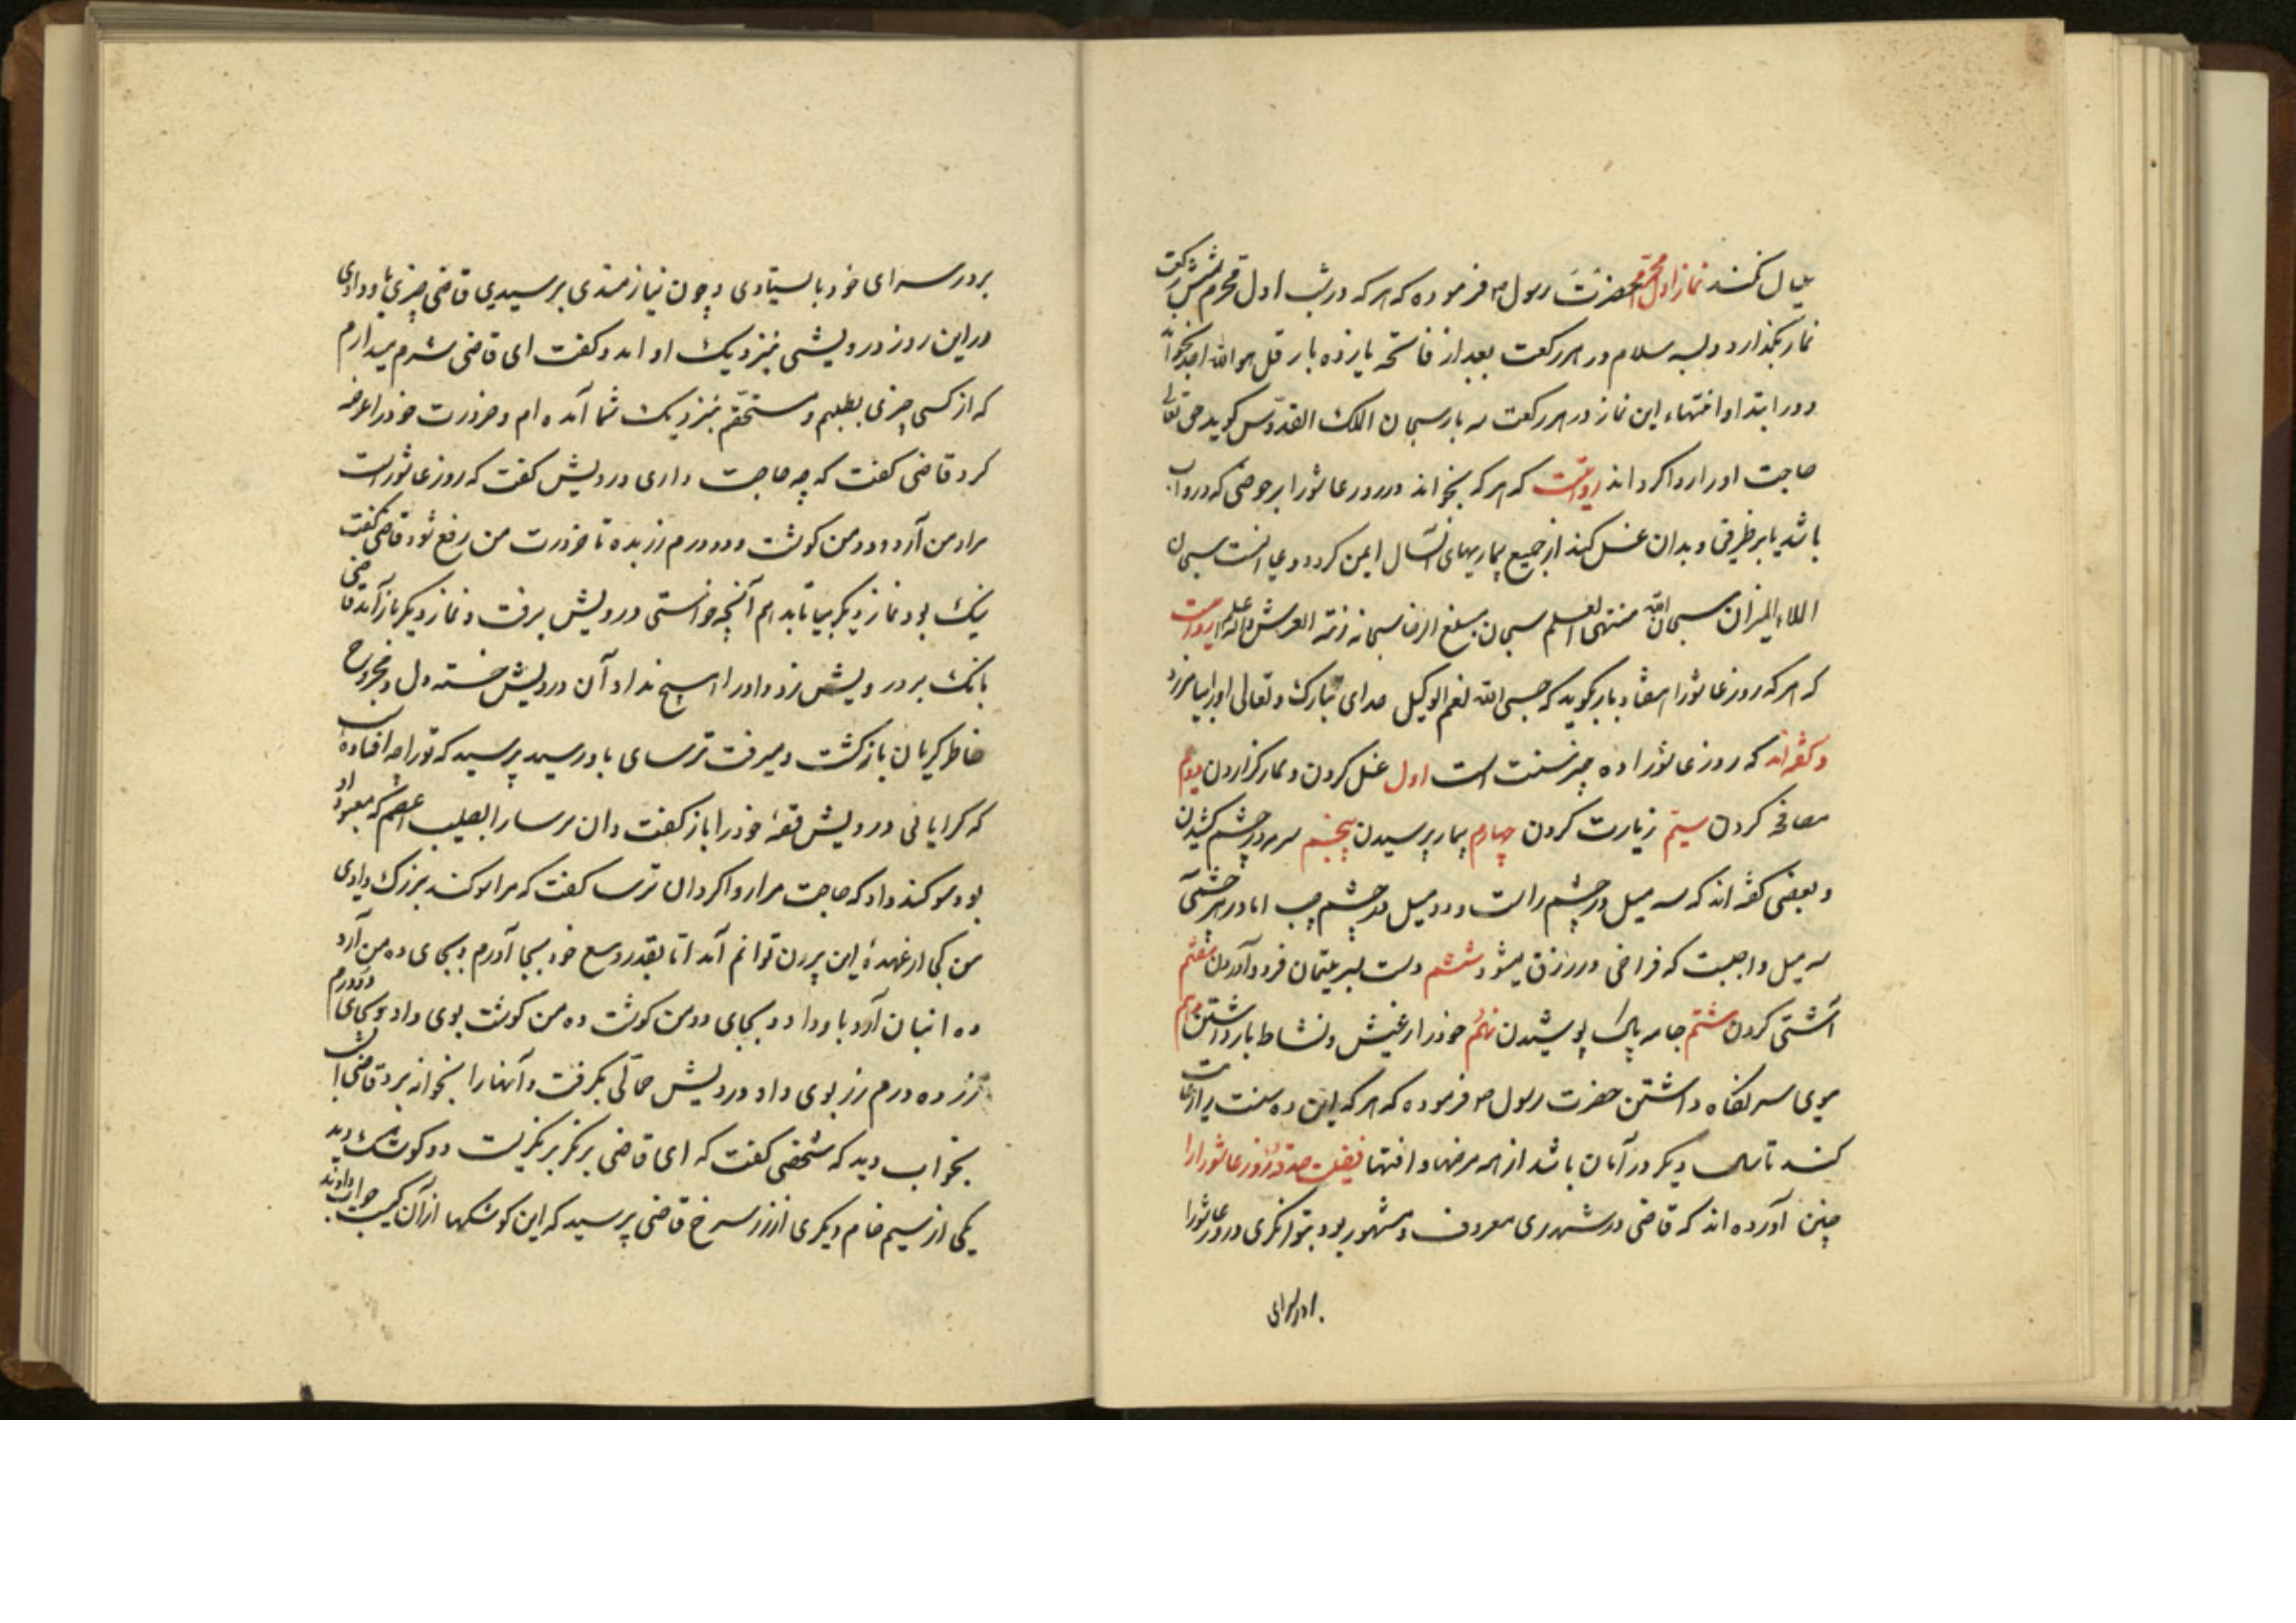 نماز اول محرم حضرت رسول ص فرموده که هر که در شب اول محرم شش رکعت
نماز بگذارد و بسه سلام در هر رکعت بعد از فاتحه یازده بار قل هو الله احد بخواند
و در ابتدا و انتهاء این نماز در هر رکعت سه بار سبحان الملک القدوس گوید حق تعالی
حاجت او را روا گرداند روایتست که هر که بخواند در روز عاشورا بر حوضی که در و آب
باشد یا بر ظرفی و بدان غسل کند از جمیع بیماریهای آنسال ایمن گردد و دعا اینست سبحان
الله ملاء المیزان سبحان الله منتهی العلم سبحان مبلغ الرضا سبحانه زنة العرش روایتست
که هر که روز عاشورا هفتاد بار بگوید که حسبی الله نعم الوکیل خدای تبارک و تعالی او را بیامرزد
و گفته‌اند که روز عاشورا ده چیز سنت است اول غسل کردن و نماز گزاردن دویم
مصافحه کردن سیم زیارت کردن چهارم بیمار پرسیدن پنجم سرمه در چشم کشیدن
و بعضی گفته اند که سه میل در چشم راست و دو میل در چشم چپ اما در هر چشمی
سه میل واجبست که فراخی در رزق میشود ششم دست بسر یتیمان فرود آوردن هفتم
آشتی کردن هشتم جامه پاک پوشیدن نهم خود را از عیش و نشاط باز داشتن دهم
موی سر نگاه داشتن حضرت رسول ص فرموده که هر که این ده سنت را رعایت
کند تا سال دیگر در امان باشد از همه مرضها و آفتها فضیلت صدقه روز عاشورا را
چنین آورده اند که قاضی در شهری معروف و مشهور بود بتوانگری در روز عاشورا
بر در سرای
بر در سرای خود بایستادی و چون نیازمندی برسیدی قاضی چیزی باو دادی
در این روز درویشی بنزدیک او آمد و گفت ای قاضی شرم میدارم
که از کسی چیزی بطلبم و مستحقم بنزدیک شما آمده ام و ضرورت خود را عرضه
کرد قاضی گفت که چه حاجت داری درویش گفت که روز عاشوراست
مرا ده من آرد و دو من گوشت و دو درم زر بده تا ضرورت من رفع شود قاضی گفت
نیک بود نماز دیگر بیا تا بدهم آنچه خواستی درویش برفت و نماز دیگر باز آمد قاضی
بانک بر درویش زد و او را هیچ نداد آن درویش خسته دل و مجروح
خاطر گریان بازگشت و میرفت ترسای باو رسید پرسید که تو را چه افتاده است
که گریانی درویش قصهٔ خود را باز گفت و آن ترسا را بصلیب اعظم که معبود او
بود سوگند داد که حاجت مرا روا گردان ترسا گفت که مرا سوگند بزرگ دادی
من کی از عهدهٔ این بیرون توانم آمد اما بقدر وسع خود بجا آورم و بجای ده من آرد
ده انبان آرد باو داد و بجای دو من گوشت ده من گوشت بوی داد و بجای دو درم
زر ده درم زر بوی داد درویش حمالی بگرفت و آنها را بخوانه برد قاضی آن شب
بخواب دید که شخصی گفت که ای قاضی بر نگر بر نگریست دو کوشک دید
یکی از سیم خام و یکری از زر سرخ قاضی پرسید که این کوشکها از آن کیست جواب دادند